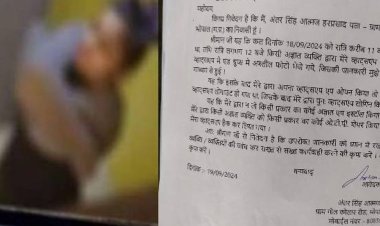 महोदय,
विनम्र निवेदन है कि मैं, अंतर सिंह आत्मज हरप्रसाद पता – ग्राम
भोपाल (म.प्र.) का निवासी हूं।
श्रीमान जी यह कि कल दिनांक 18/09/2024 को रात्रि करीब 11
रात्रि लगभग 12 बजे किसी अज्ञात व्यक्ति द्वारा मेरे व्हाट्सएप
व्हाट्सएप में एड ग्रुप में अश्लील फोटो भेजे गये, जिसकी जानकारी मुझे
माध्यम से हुई।
यह कि इसके बाद मेरे द्वारा अपना व्हाट्सएप एप ओपन किया तो
व्हाट्सएप लॉगआउट हो गया था, जिसके बाद मेरे द्वारा पुनः व्हाट्सएप लॉगिन
यह कि मेरे द्वारा न तो किसी प्रकार का कोई अज्ञात एप इंस्टॉल
मेरे द्वारा किसी अज्ञात व्यक्ति को किसी प्रकार का कोई ओ.टी.पी. शेयर किया
मेरा व्हाट्सएप हैक कर लिया गया।
अतः श्रीमान जी से निवेदन है कि उपरोक्त जानकारी को ध्यान में
व्यक्ति / व्यक्तियों की जांच कर सख्त से सख्त कार्यवाही करने की कृपा करें।
कृपा करें।
दिनांक :- 19/09/2024
धन्यवाद
अंतर सिंह आत्मज
ग्राम गोल कोलार रोड,
मोबाईल नंबर